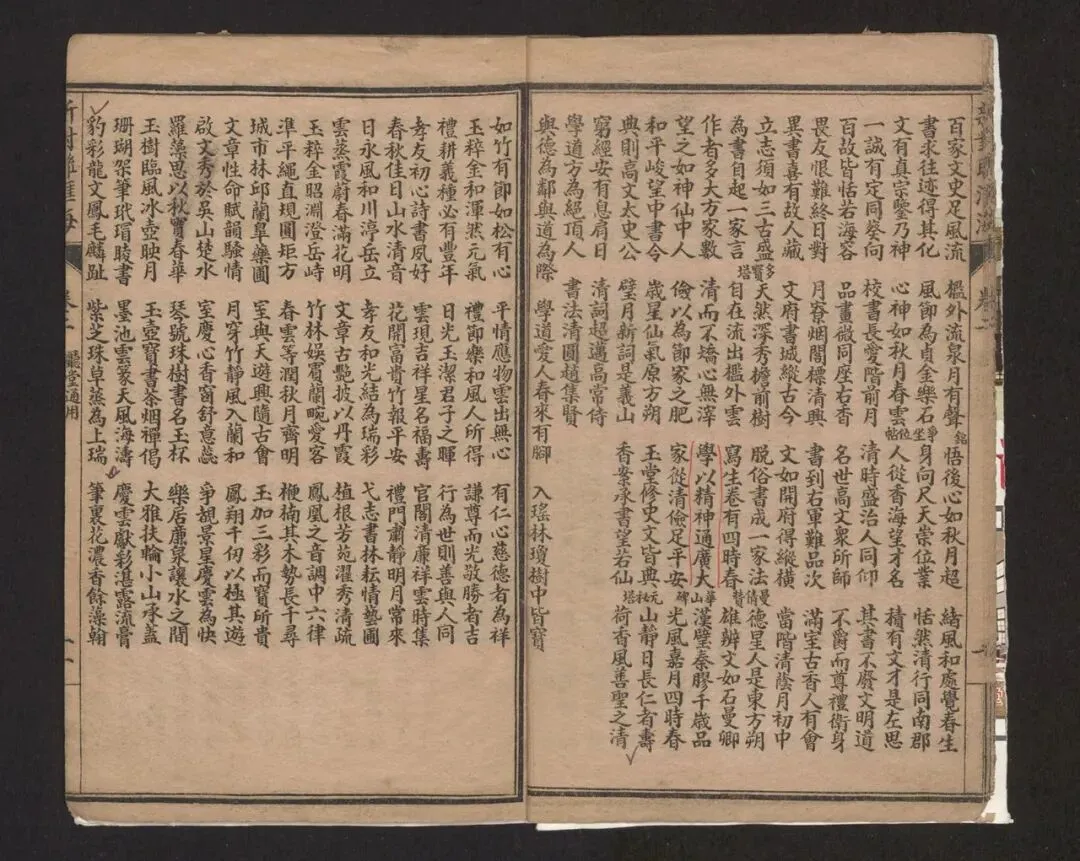 百家文史足風流 檻外流泉月有聲 銘 悟後心如秋月超 緒風和處覺春生
書求往迹得其化 風節為貞金樂石 爭坐位帖 身向尺天崇位業 恬然清行同南郡
文有真宗鑒乃神 心神如秋月春雲 人從香海望才名 積有文才是左思
一誠有定同葵向 校書長愛階前月 清時盛治人同仰 其書不廢文明道
百故皆恬若海容 品畫微同座右香 名世高文衆所師 不爵而尊禮衛身
畏友恨難終日對 月寮烟閣標清興 書到右軍難品次 滿室古香人有會
異書喜有故人藏 文府書城縱古今 文如開府得縱橫 當階清蔭月初中
立志須如三古盛 多寶塔 天然深秀檐前樹 脫俗書成一家法 曼倩贊 德星人是東方朔
為書自起一家言 自在流出檻外雲 寫生卷有四時春 雄辨文如石曼卿
作者多大方家數 清而不矯心無滓 學以精神通廣大 華山碑 漢璧秦膠千歲品
望之如神仙中人 儉以為節家之肥 家從清儉足平安 光風嘉月四時春
和平峻望中書令 歲星仙氣原方朔 玉堂修史文皆典 元秘塔 山靜日長仁者壽
典則高文太史公 璧月新詞是義山 香案承書望若仙 荷香風善聖之清
窮經安有息肩日 清詞超邁高常侍
學道方為絕頂人 書法清圓趙集賢
與德為鄰與道為際 學道愛人春來有腳 入瑤林瓊樹中皆寶
如竹有節如松有心 平情應物雲出無心 有仁心慈德者為祥
玉粹金和渾然元氣 禮節樂和風人所得 謙尊而光敬勝者吉
禮耕義種必有豐年 日光玉潔君子之暉 行為世則善與人同
孝友初心詩書夙好 雲現吉祥星名福壽 官閣清廉祥雲時集
春秋佳日山水清音 花開富貴竹報平安 禮門肅靜明月常來
日永風和川渟岳立 孝友和光結為瑞彩 弋志書林耘情藝圃
雲蒸霞蔚春滿花明 文章古艷披以丹霞 植根芳苑濯秀清疏
玉粹金昭淵澄岳峙 竹林娛賓蘭畹愛客 鳳凰之音調中六律
準平繩直規圓矩方 春雲等潤秋月齊明 楩楠其木勢長千尋
城市林邱蘭皋藥圃 室與天遊興隨古會 玉加三彩而寶所貴
文章性命賦韻騷情 月穿竹靜風入蘭和 鳳翔千仞以極其遊
啟文秀於吳山楚水 室慶心香窗舒意蕊 爭覩景星慶雲為快
羅藻思以秋實春華 琴號珠樹書名玉杯 樂居廉泉讓水之間
玉樹臨風冰壺映月 玉壺寶書茶烟禪偈 大雅扶輪小山承蓋
珊瑚架筆玳瑁書 墨池雲篆天風海濤 慶雲獻彩湛露流膏
豹彩龍文鳳毛麟趾 紫芝珠草蒸為上瑞 筆裏花濃香餘藻翰
廳堂通用